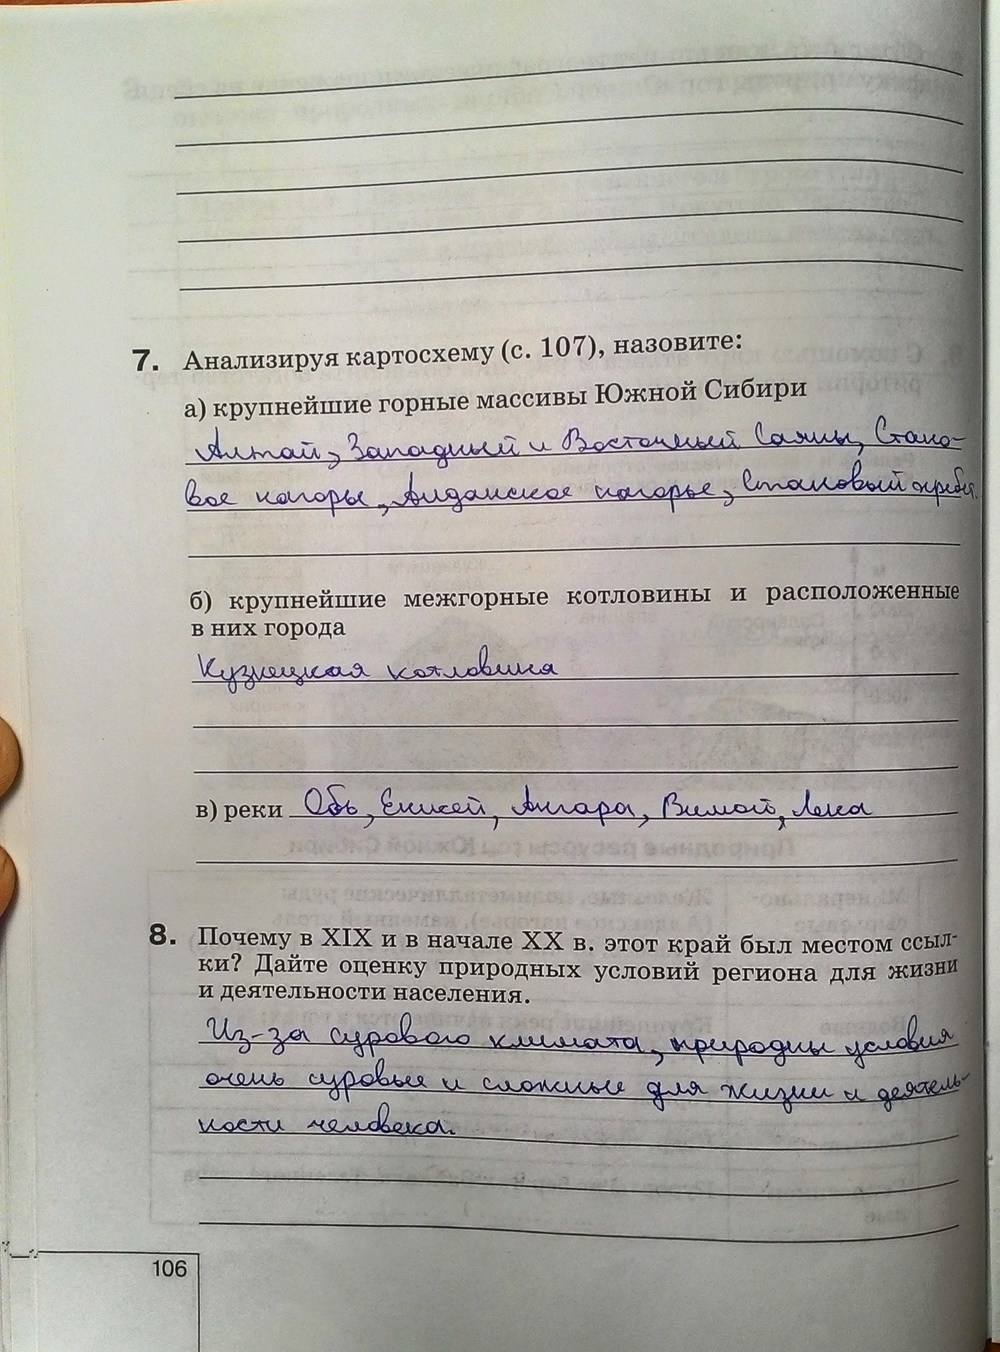 7. Анализируя картосхему (с. 107), назовите:
а) крупнейшие горные массивы Южной Сибири
Алтай, Западный и Восточный Саяны, Стано-
вое нагорье, Алданское нагорье, Становый хребет.
б) крупнейшие межгорные котловины и расположенные
в них города
Кузнецкая котловина
в) реки Обь, Енисей, Ангара, Вилюй, Лена
8. Почему в XIX и в начале XX в. этот край был местом ссыл-
ки? Дайте оценку природных условий региона для жизни
и деятельности населения.
Из-за сурового климата, природны условия
очень суровые и сложные для жизни и деятель-
ности человека.
106